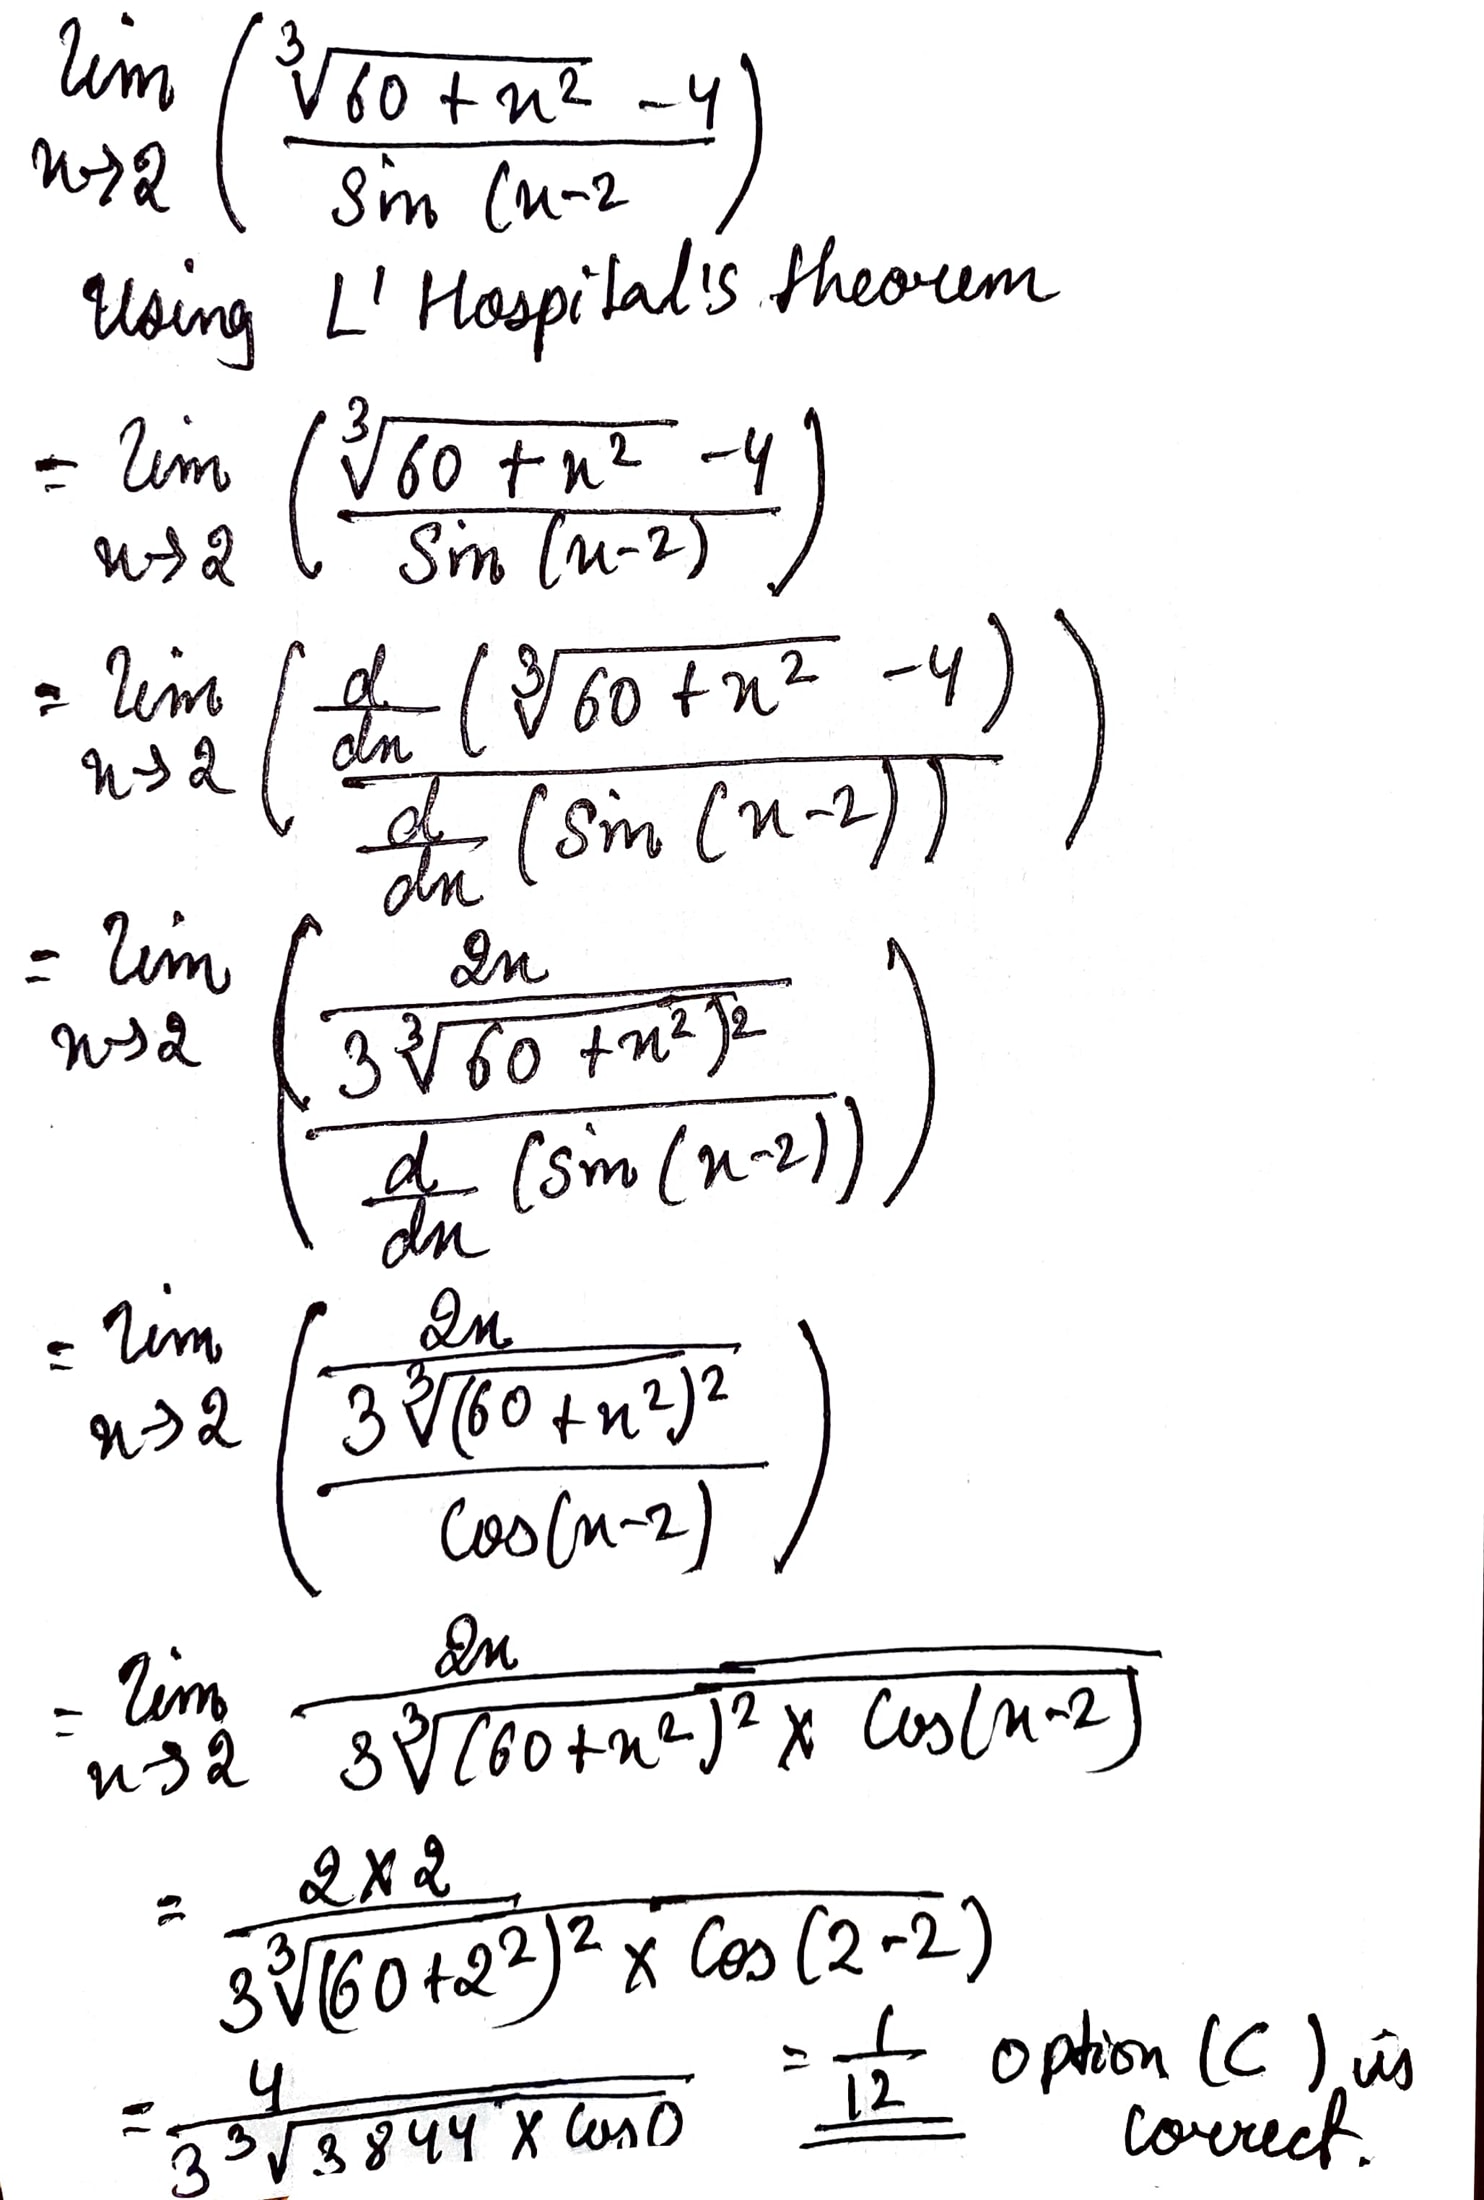 lim x→2 (∛(60 + x²) − 4 / Sin (x−2)
Using L' Hospital's theorem
= lim x→2 (∛(60 + x²) − 4 / Sin (x−2))
= lim x→2 (d/dx (∛(60 + x²) − 4) / d/dx (Sin (x−2)))
= lim x→2 (2x / 3∛60 + x²)² / d/dx (Sin (x−2)))
= lim x→2 (2x / 3∛(60 + x²)² / Cos(x−2))
= lim x→2 2x / 3∛(60 + x²)² × Cos(x−2)
= 2×2 / 3∛(60 + 2²)² × Cos (2−2)
= 4 / 3∛3844 × Cos 0 = 1/12 option (C) is correct.